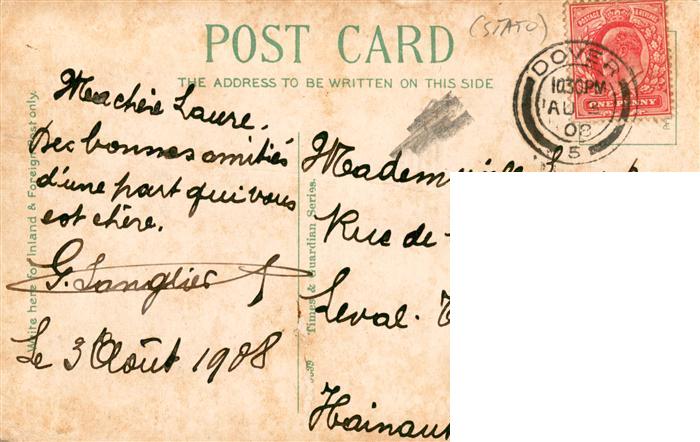 (STATO)
POST CARD
THE ADDRESS TO BE WRITTEN ON THIS SIDE
POSTAGE REVENUE
ONE PENNY
DOVER
10.30PM
AU
08
5
Write here for Inland & Foreign Post only.
Ma chère Laure,
Des bonnes amitiés
d'une part qui vous
est chère.
G. Sanglier
Le 3 Août 1908
Times & Guardian Series.
Rue de
Leval.